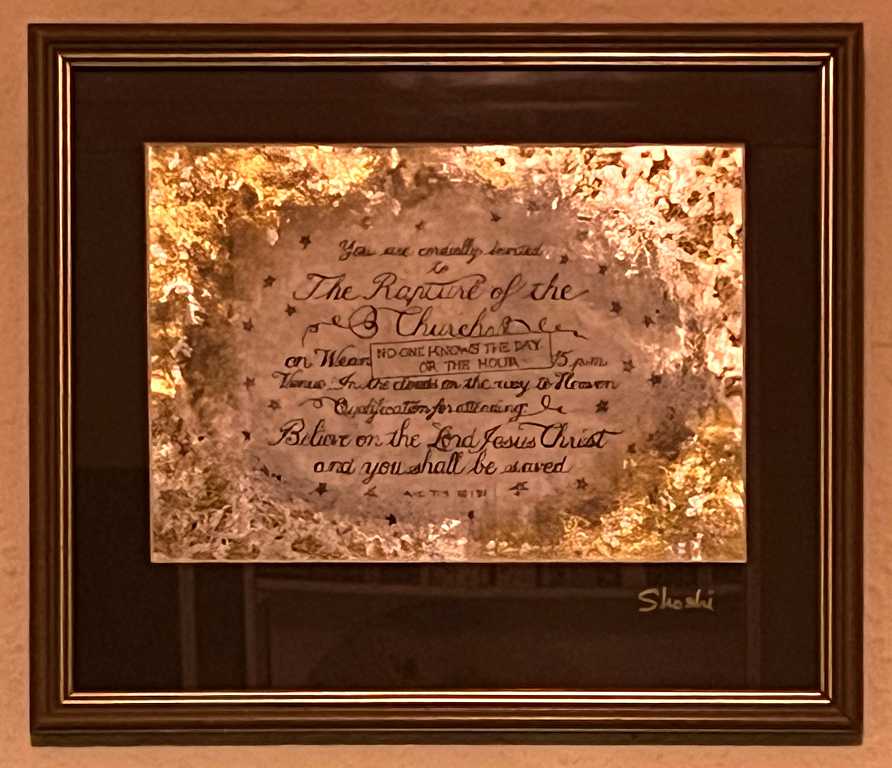 You are cordially invited
to
The Rapture of the
Church
on Wedn NO ONE KNOWS THE DAY 5 p.m
OR THE HOUR
Venue In the clouds on the way to Heaven
Qualification for attending
Believe on the Lord Jesus Christ
and you shall be saved
Shoshi